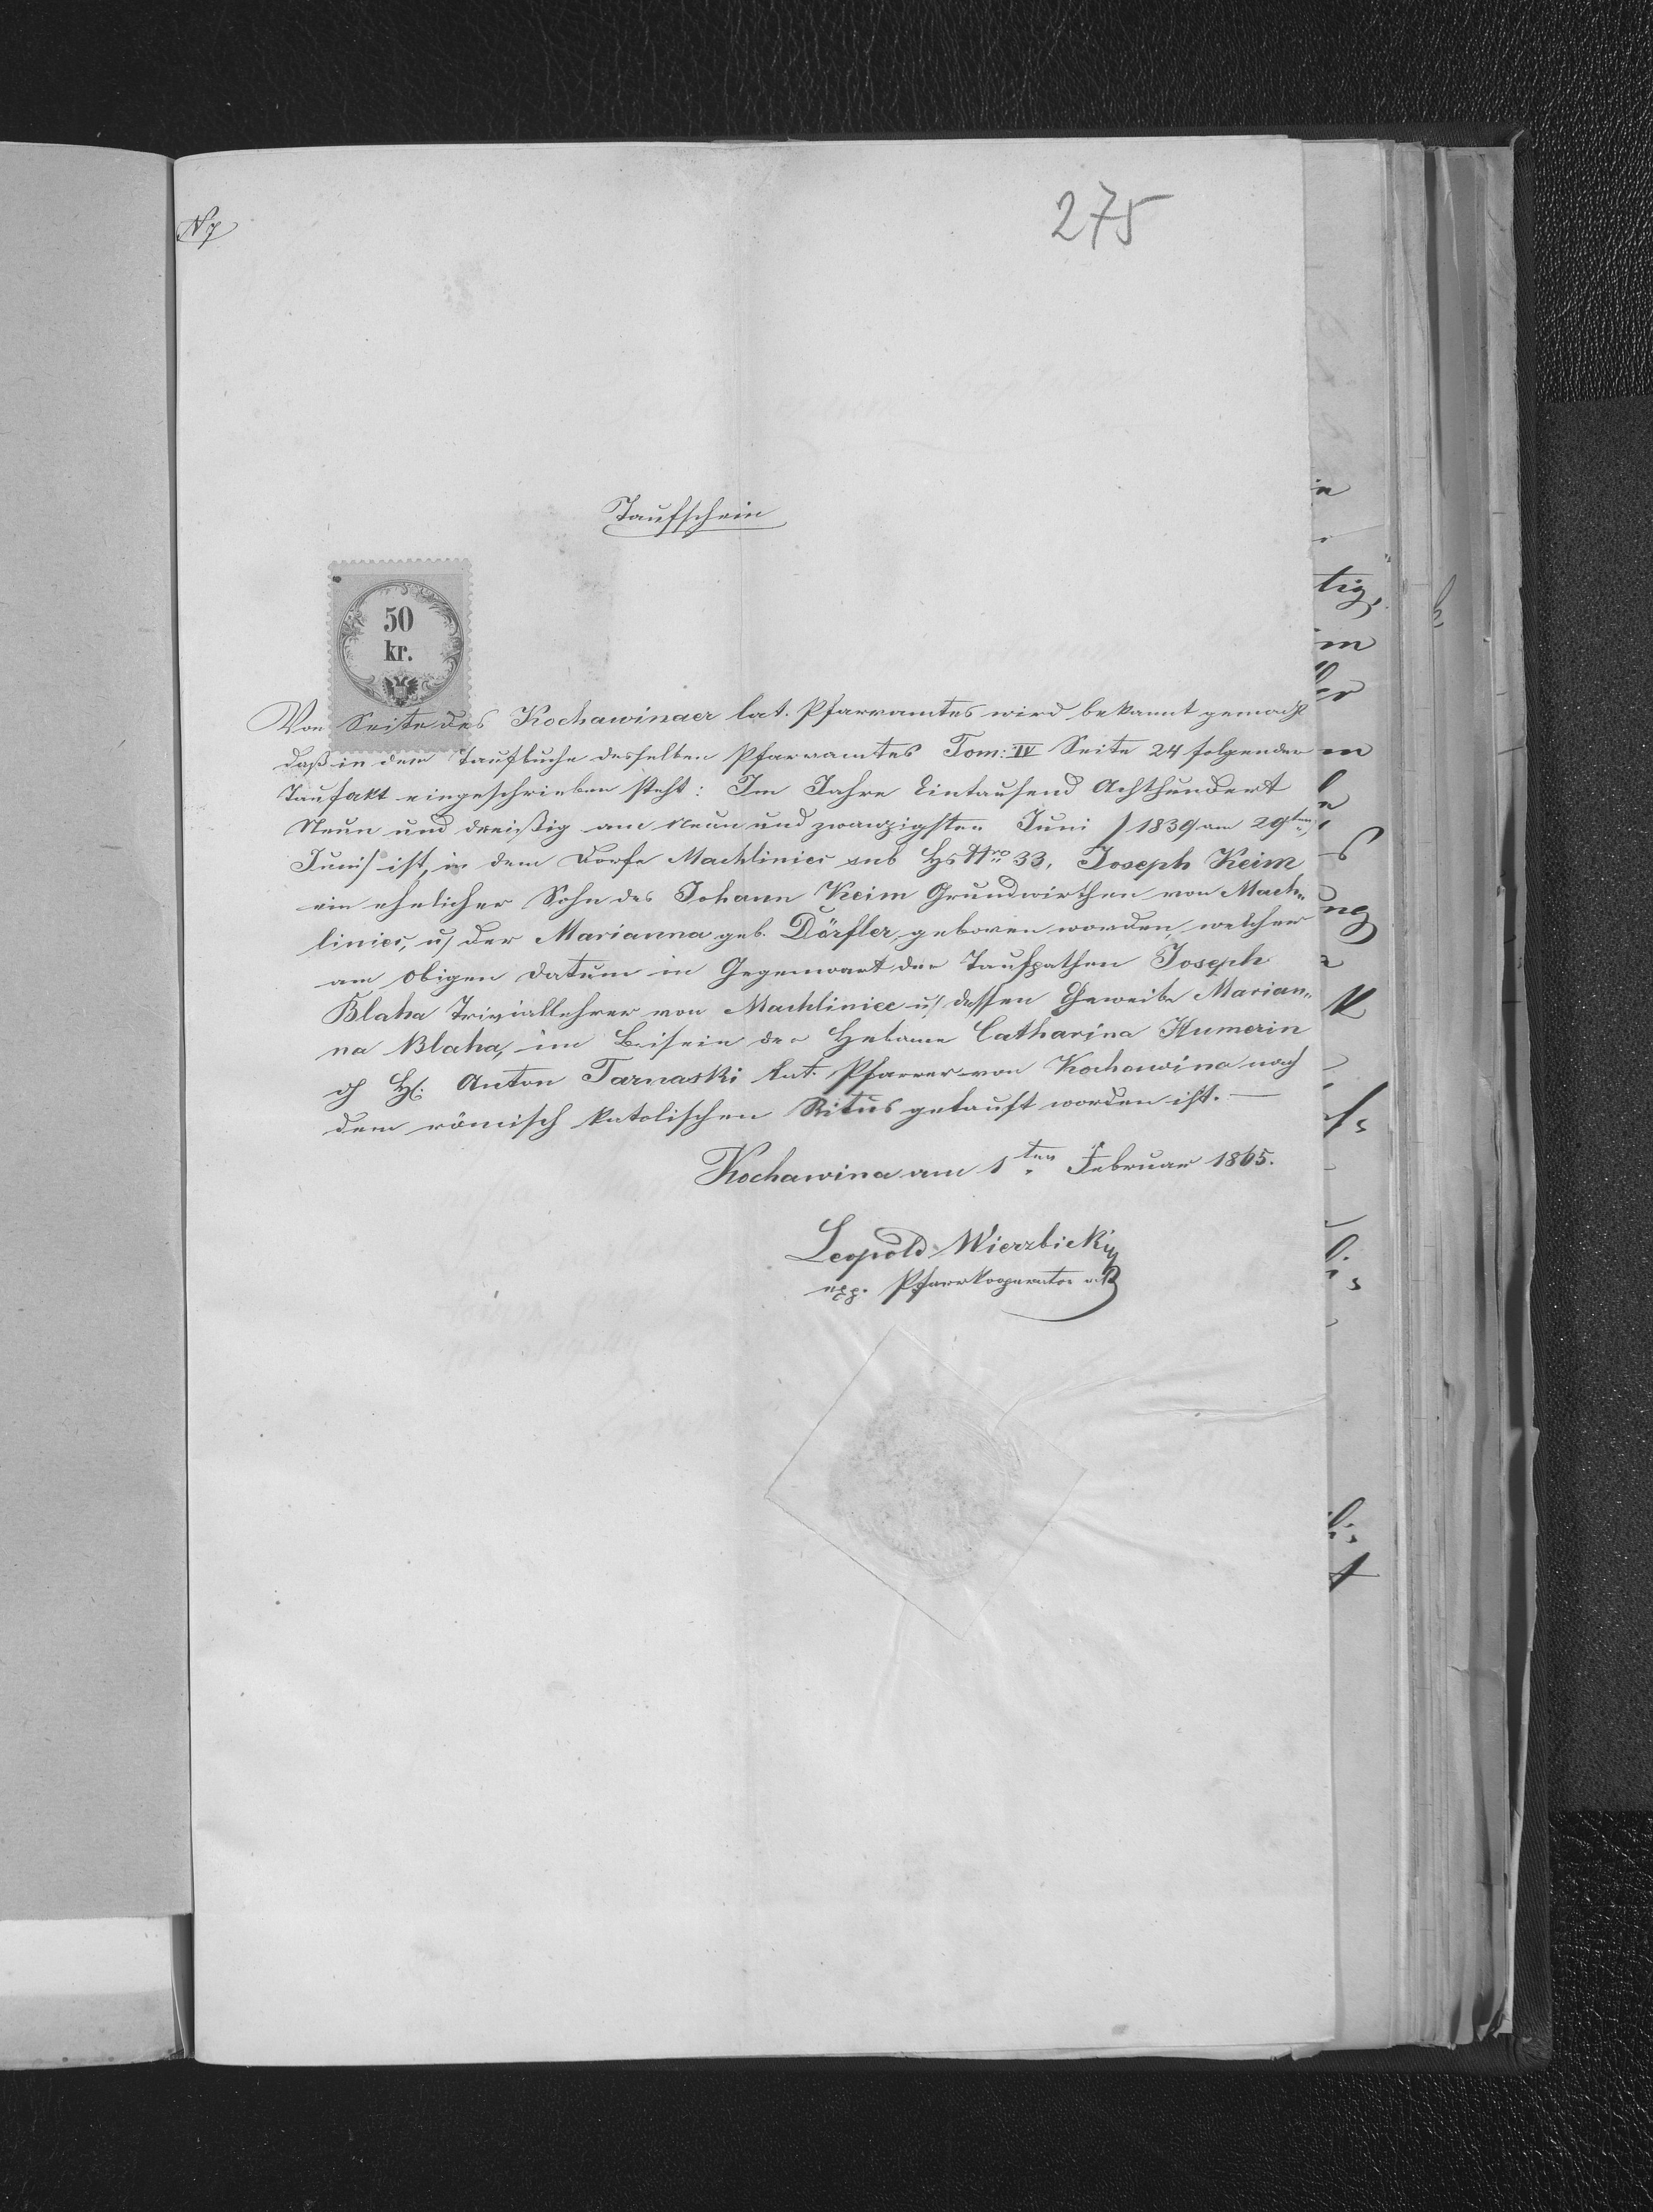 N 7
275
Taufschein
50
kr.
Von Seite des Kochawinaer lat. Pfarramtes wird bekannt gemacht
daß in dem Taufbuche desselben Pfarramtes Tom: IV Seite 24 folgender
Taufakt eingeschrieben steht: Im Jahre Eintausend Achthundert
Neun und dreißig am Neun und zwanzigsten Juni /1839 am 29ten
Juni/ ist, in dem Dorfe Machliniec sub Hs Nro 33, Joseph Keim
ein ehelicher Sohn des Johann Keim Grundwirthen von Mach„
liniec, u/ der Marianna geb. Dörfler, geboren worden, welcher
am obigen Datum in Gegenwart der Taufpathen Joseph
Blaha Triviallehrer von Machliniec u/ dessen Eheweibe Marian„
na Blaha, im Beisein der Hebame Catharina Humerin
dh H: Anton Tarnaski lat. Pfarrer von Kochawina nach
dem römisch katolischen Ritus getauft worden ist. —
Kochawina am 1ten Februar 1865.
Leopold Wierzbicki
Pfarrkooperator